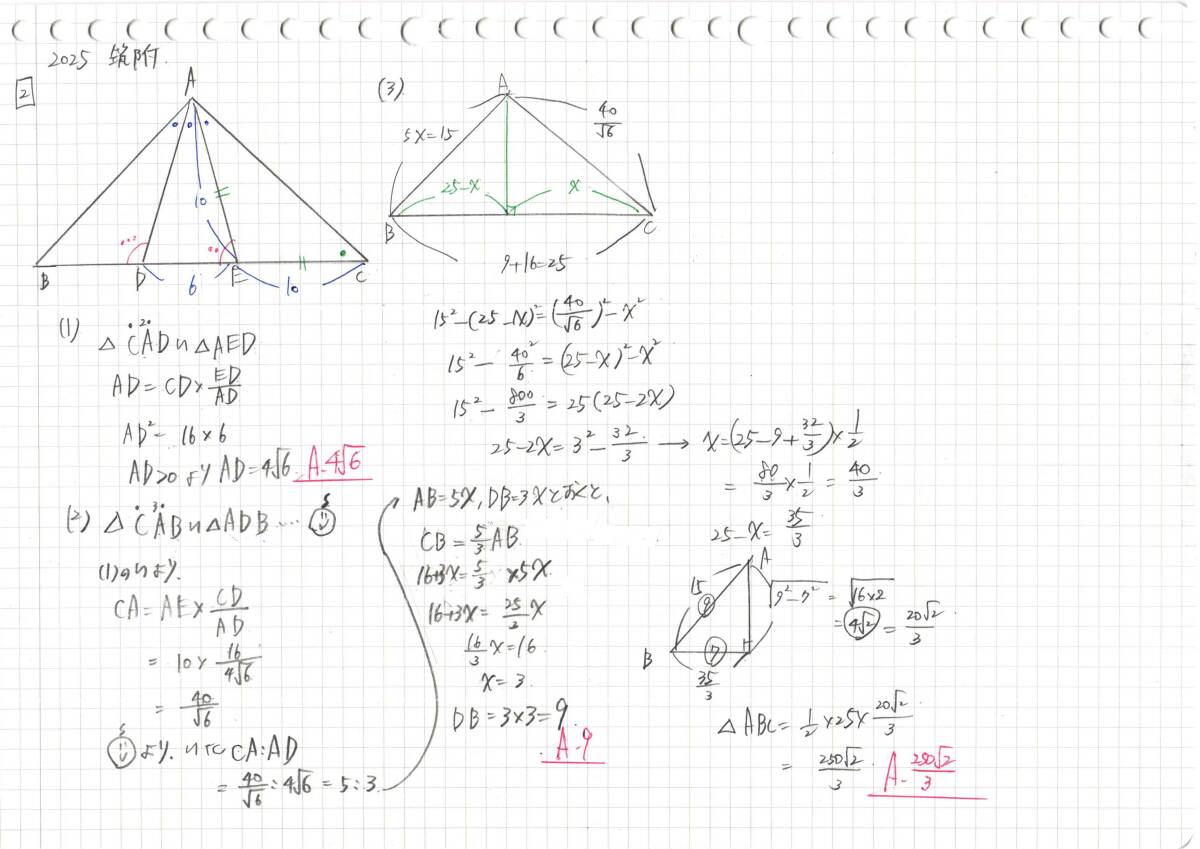 2025 筑附.
2
A
10
B
D
E
C
6
10
(1)
△CAD∽△AED
AD=CD×ED/AD
AD²=16×6
AD>0より AD=4√6. A.4√6
(2) △CAB∽△ADB ...
(1)の∽より.
CA=AE×CD/AD
=10×16/4√6
=40/√6
より. ∽比 CA:AD
=40/√6:4√6=5:3.
AB=5x, DB=3xとおくと,
CB=5/3AB
16+3x=5/3×5x
16+3x=25/3x
16/3x=16
x=3.
DB=3×3=9
A.9
(3)
A
5x=15
40/√6
25-x
x
B
C
9+16=25
15²-(25-x)²=(40/√6)²-x²
15²-40²/6=(25-x)²-x²
15²-800/3=25(25-2x)
25-2x=3²-32/3 → x=(25-9+32/3)×1/2
=80/3×1/2=40/3
25-x=35/3
A
15
9
√9²-7²=√16×2
=4√2=20√2/3
B
7
35/3
△ABC=1/2×25×20√2/3
=250√2/3. A.250√2/3